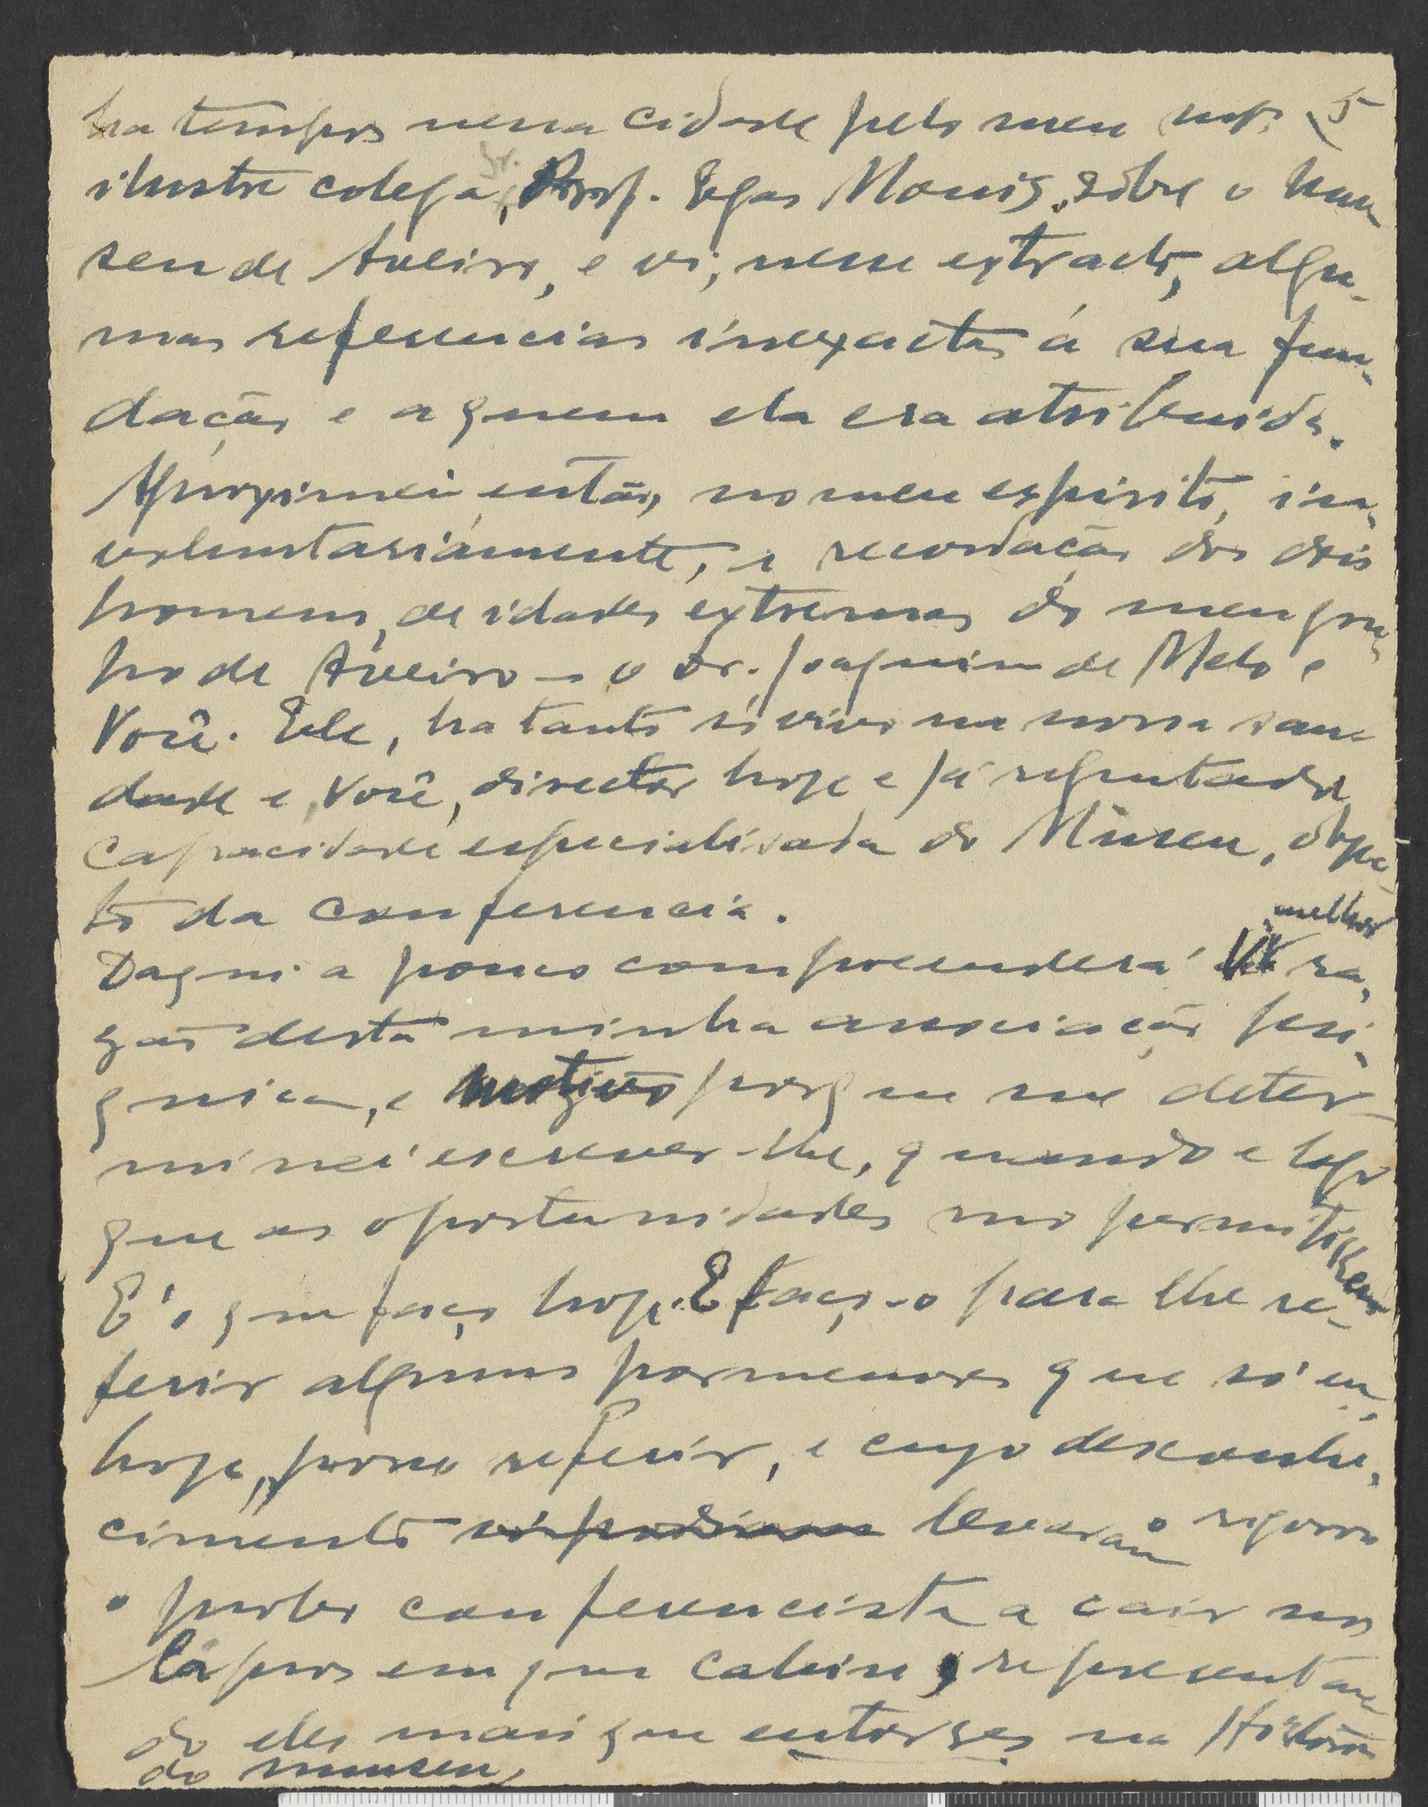 ha tempos nessa cidade pelo meu 5
ilustre colega, Sr. Prof. Egas Moniz, sôbre o Mu
seu de Aveiro, e vi, nesse extracto, algu-
mas referencias inexactas á sua fun-
dação e a quem ela era atribuida.
Aproximei então, no meu espirito, in-
voluntariamente, a recordação dos dois
homens, de idades extremas do meu gru-
po de Aveiro - o Dr. Joaquim de Melo e
Você. Ele, ha tanto só vivo na nossa sau
dade e, Você, director hoje e já reputada
capacidade especialisada do Museu, obje-
to da conferencia.
Daqui a pouco compreenderá melhor ra-
zão desta minha associação psi-
quica, e motivo porque me deter-
minei escrever-lhe, quando e logo
que as oportunidades mo permitissem
É o que faço hoje. E faço-o para lhe re-
ferir alguns pormenores que só eu,
hoje, posso referir, e cujo desconhe-
cimento levaram o rigoroso
e conferencista a cair nos
lapsos em que cahiu, representan
do eles mais que entorses na Historia
do museu,